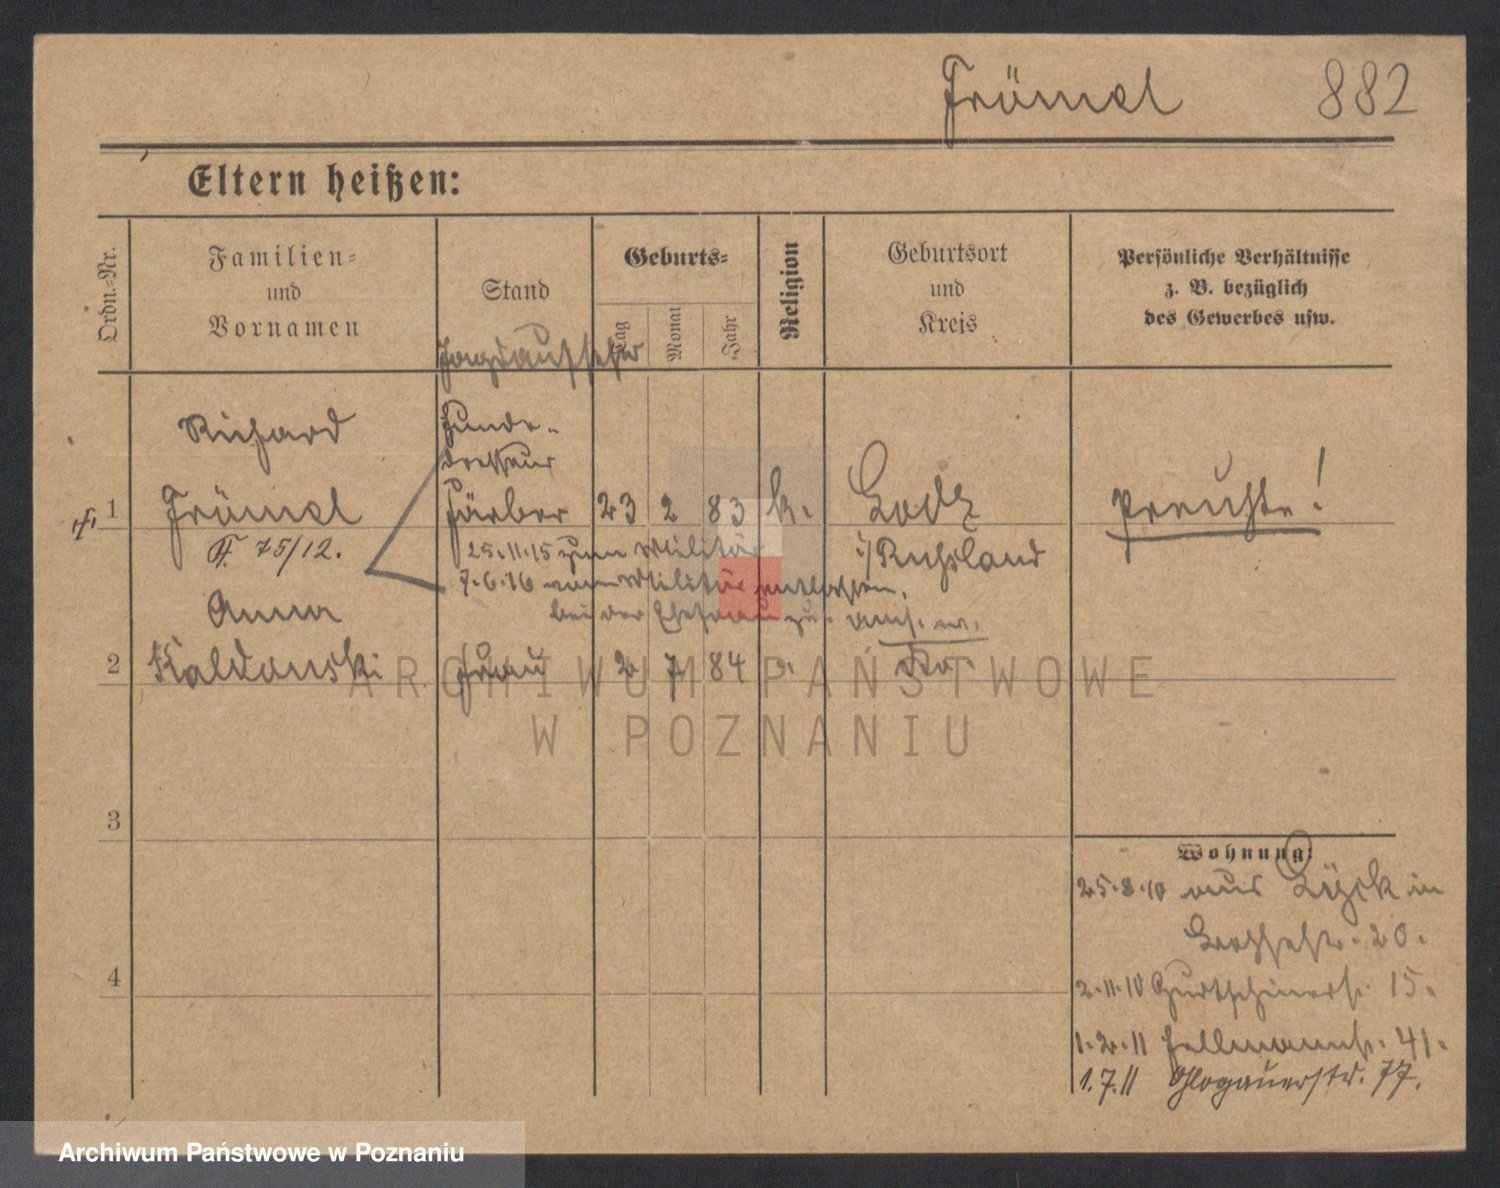 Frümel 882
Eltern heißen:
Ordn.-Nr.
Familien-
und
Vornamen
Stand
Geburts-
Tag
Monat
Jahr
Religion
Geburtsort
und
Kreis
Persönliche Verhältnisse
z. B. bezüglich
des Gewerbes usw.
Jagdaufseher
Richard
Hunde-
dresseur
1 Frümel Färber 23 2 83 k. Lodz Preuße!
F. 75/12.
25.11.15 zum Militär
i/Rußland
7.6.16 vom Militär entlassen.
bei der Ehefrau zu.
Anna
2 Kaldonski Frau 2 7 84
3
4
Wohnung:
25.8.10 aus in
20.
2.11.10 15.
1.2.11 41.
1.7.11 Glogauerstr. 77.
ARCHIWUM PAŃSTWOWE
W POZNANIU
Archiwum Państwowe w Poznaniu